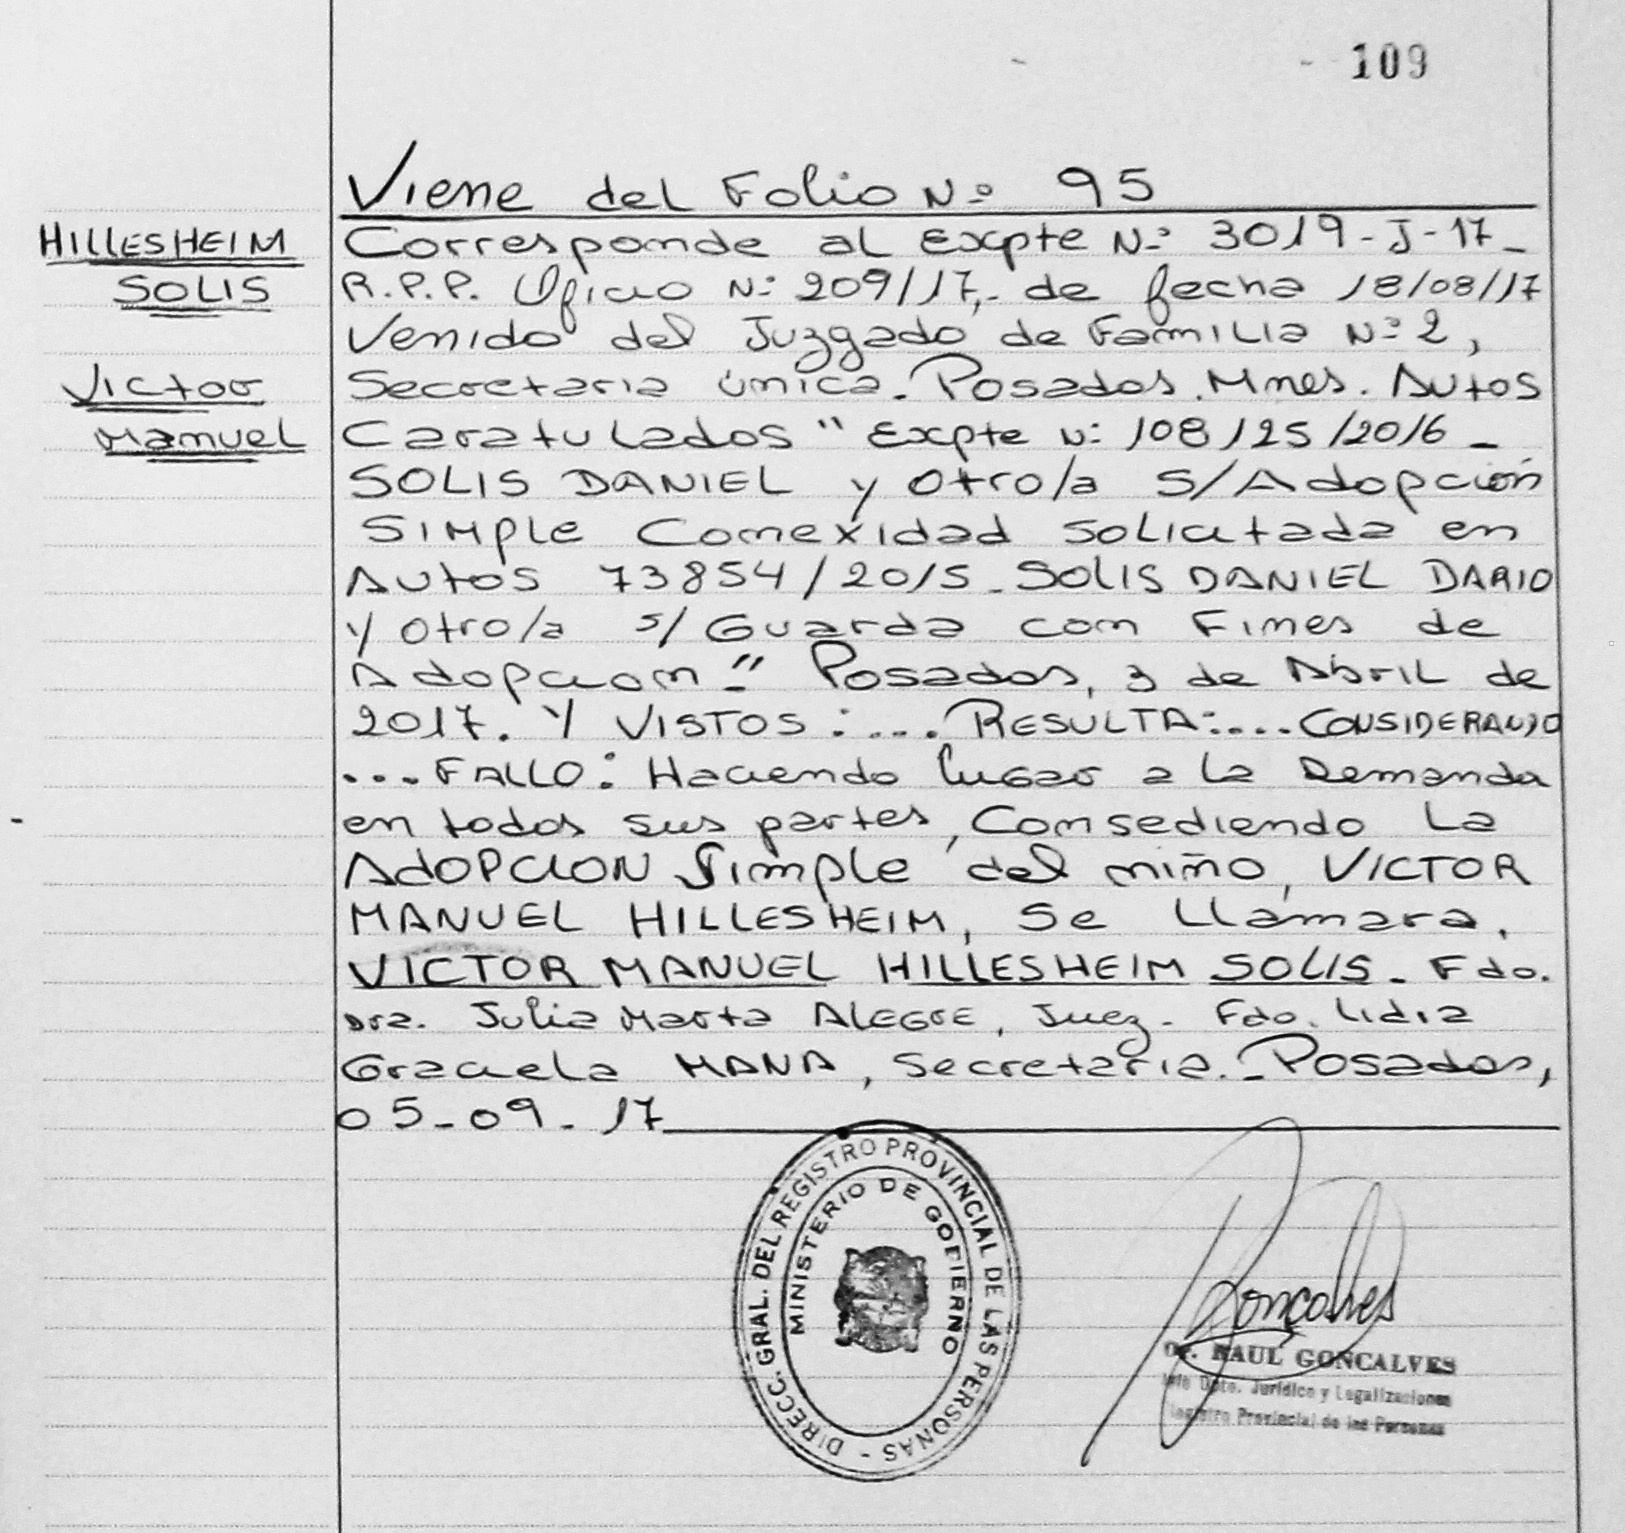 109
Viene del Folio N:º 95
HILLESHEIM
SOLIS
Victor
Manuel
Corresponde al Expte N:º 3019-J-17-
R.P.P. Oficio N:º 209/17,- de fecha 18/08/17
Venido del Juzgado de Familia Nº 2,
Secretaria única. Posadas. Mnes. Autos
Caratulados " Expte N:º 108125/2016 -
SOLIS DANIEL y otro/a S/Adopción
Simple Conexidad Solicitada en
Autos 73854/2015 - SOLIS DANIEL DARIO
y otro/a s/ Guarda con Fines de
Adopcion-" Posadas, 3 de Abril de
2017. Y VISTOS:.... RESULTA:.... CONSIDERANDO
.... FALLO: Haciendo lugar a la Demanda
en todos sus partes, Consediendo La
ADOPCION Simple del niño, VICTOR
MANUEL HILLESHEIM, Se Llamara,
VICTOR MANUEL HILLESHEIM SOLIS - Fdo.
Dra. Julia Marta ALEGRE, Juez - Fdo. Lidia
Graciela MANA, Secretaria.- Posadas,
05-09-17
DIRECC. GRAL. DEL REGISTRO PROVINCIAL DE LAS PERSONAS -
MINISTERIO DE GOBIERNO
Goncalves
RAUL GONCALVES
Dpto. Jurídico y Legalizaciones
Registro Provincial de las Personas